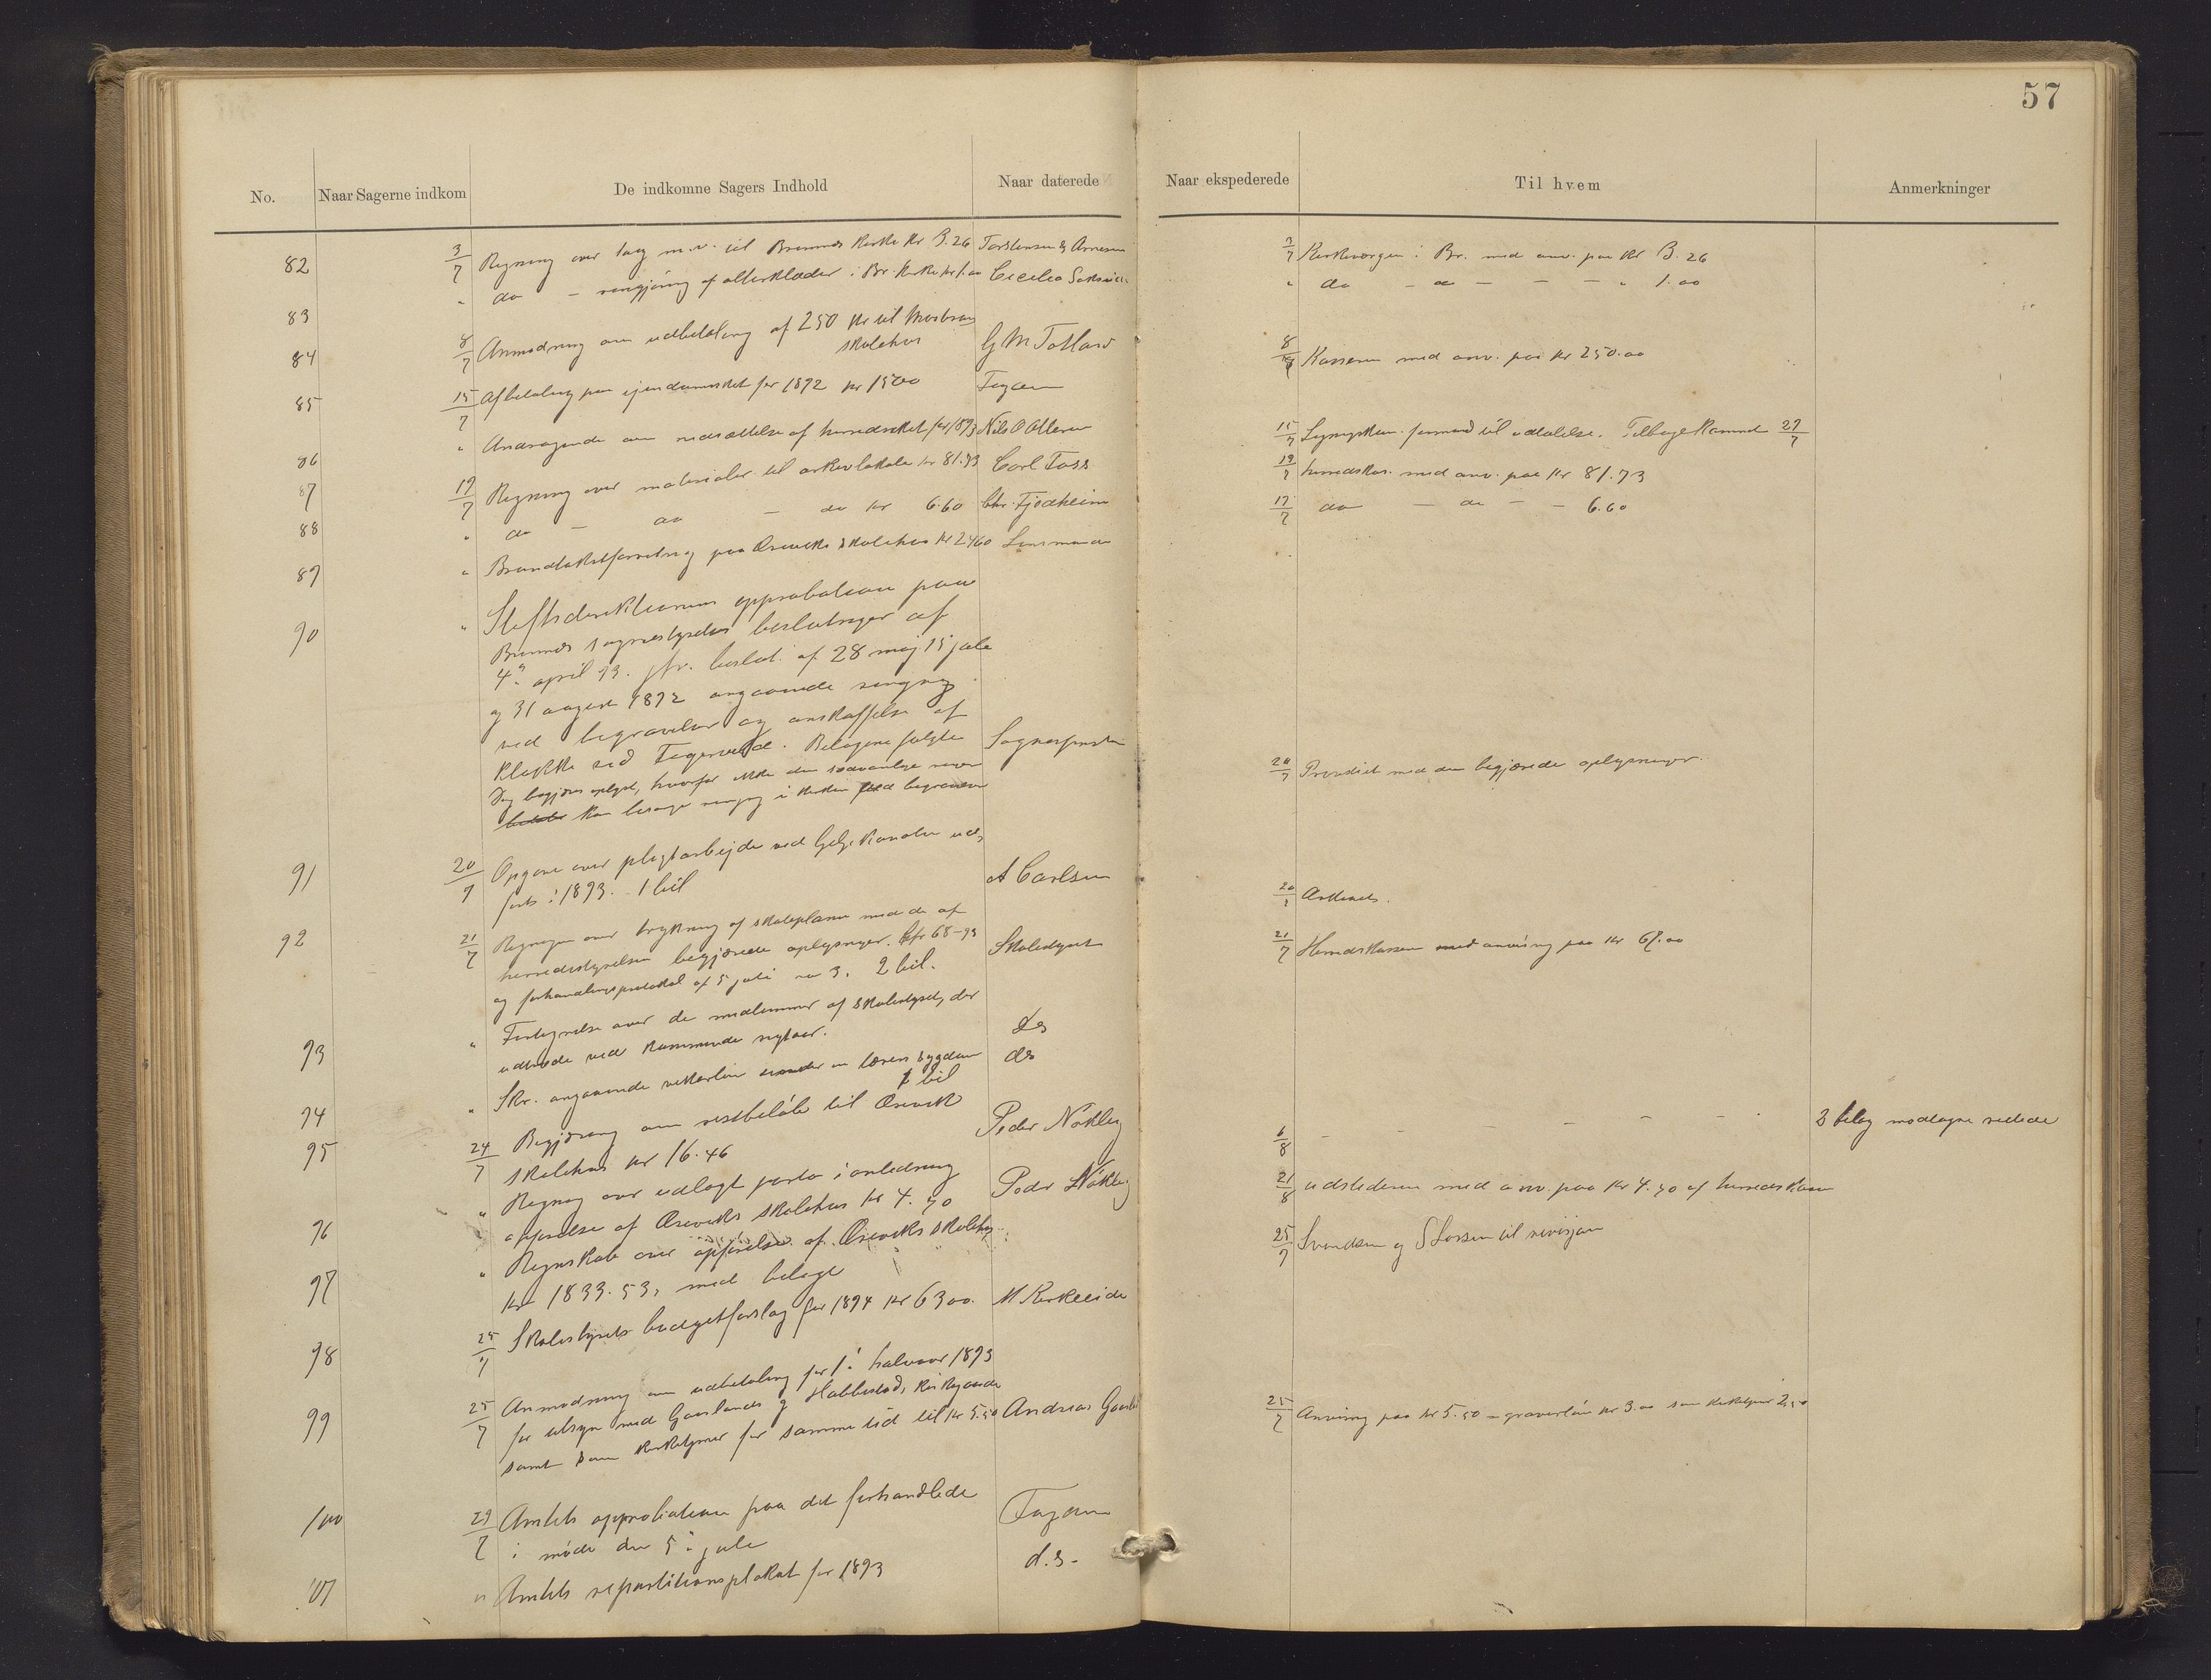 57
No.
Naar Sagerne indkom
De indkomne Sagers Indhold
Naar daterede
Naar ekspederede
Til hvem
Anmerkninger
82 3/7 Regning over tag m.v. til Brunnes Kirke Kr 3.26 Torstensen & Arnesen
3/7 Kirkevergen i Br. med anv. paa Kr 3.26
83 " do – rengjøring af alterklæder i Br. Kirke kr 1.00 Cecilia
" do – do – – – " 1.00
84 8/7 Anmodning om udbetaling af 250 Kr til
skolehus G M Totland
8/7 Kasseren med anv. paa kr 250.00
85 15/7 Afbetaling paa ejendomsskat for 1892 kr 1500 Fogden
86 " Andragende om nedsættelse af herredsskat for 1893 Nils O Otteren
15/7 formand til udtalelse. Tilbagekommet 29/7
87 19/7 Regning over materialer til arkivlokale kr 81.73 Carl Foss
19/7 herredskas. med anv. paa Kr 81.73
88 " do – do – do kr 6.60 Chr. Fjødheim
17/7 do – do – – 6.60
89 " paa skolehus Kr 2460 Lensmanden
90 " Stiftsdirektionens approbation paa
sognestyrelses beslutninger af
4de april 93. jfr. beslut. af 28 maj 15 jule
og 31 august 1892 angaaende ringning
ved begravelser og anskaffelse af
klokke ved Belagene fulgte Sognepresten
Jeg begjæres oplyst, hvorfor ikke den sædvanlige
kan besørge ringning i kirken ved begravelser
20/7 Provstiet med den begjærede oplysninger.
91 20/7 Opgave over pligtarbejde ved ud-
ført i 1893. 1 bil A Carlsen
20/7
92 21/7 Regningen over trykning af skoleplanen med de af
herredsstyrelsen begjærede oplysninger. Cfr 68-93
og forhandlingsprotokol af 5 juli no 3. 2 bil. Skolestyret
21/7 Herredskassen med anvisning paa kr 68.00
93 " Fortegnelse over de medlemmer af skolestyret, der
udtræde ved kommende nytaar. do
94 " Skr. angaaende vikarløn under en lærers sygdom do
1 bil
95 24/7 Begjæring om restbeløb til
skolehus kr 16.46 Peder Nøkling
6/8 – – – – – –
3 bilag modtagne
96 " Regning over udlagt porto i anledning
opførelse af skolehus kr 4.70 Peder Nøkling
21/8 udstederen med anv. paa kr 4.70 af herredskassen
97 " Regnskab over opførelse af skolehus
kr 1833.53, med bilage
25/7 Svendsen og S Larsen til revisjon
98 25/7 Skolestyrets budgetforslag for 1894 Kr 6300. M Kirkeeide
99 25/7 Anmodning om udbetaling for 1ste halvaar 1893
for tilsyn med og kirkegaarde
samt som kirketjener for samme tid til kr 5.50 Andreas
25/7 Anvisning paa kr 5.50 – graverløn kr 3.00 som kirketjener 2.50
100 29/7 Amtets approbation paa det forhandlede
i møde den 5te jule Fogden
101 " Amtets repartitionsplakat for 1893 d.s.